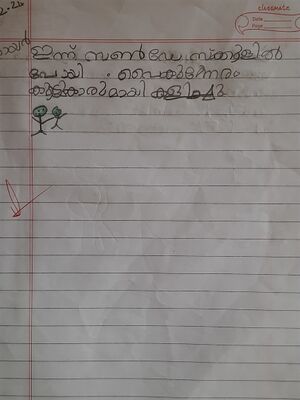 classmate
Date
Page
2.24
ഇന്ന് സൺഡേ സ്കൂളിൽ
പോയി . വൈകുന്നേരം
കൂട്ടുകാരുമായി കളിച്ചു